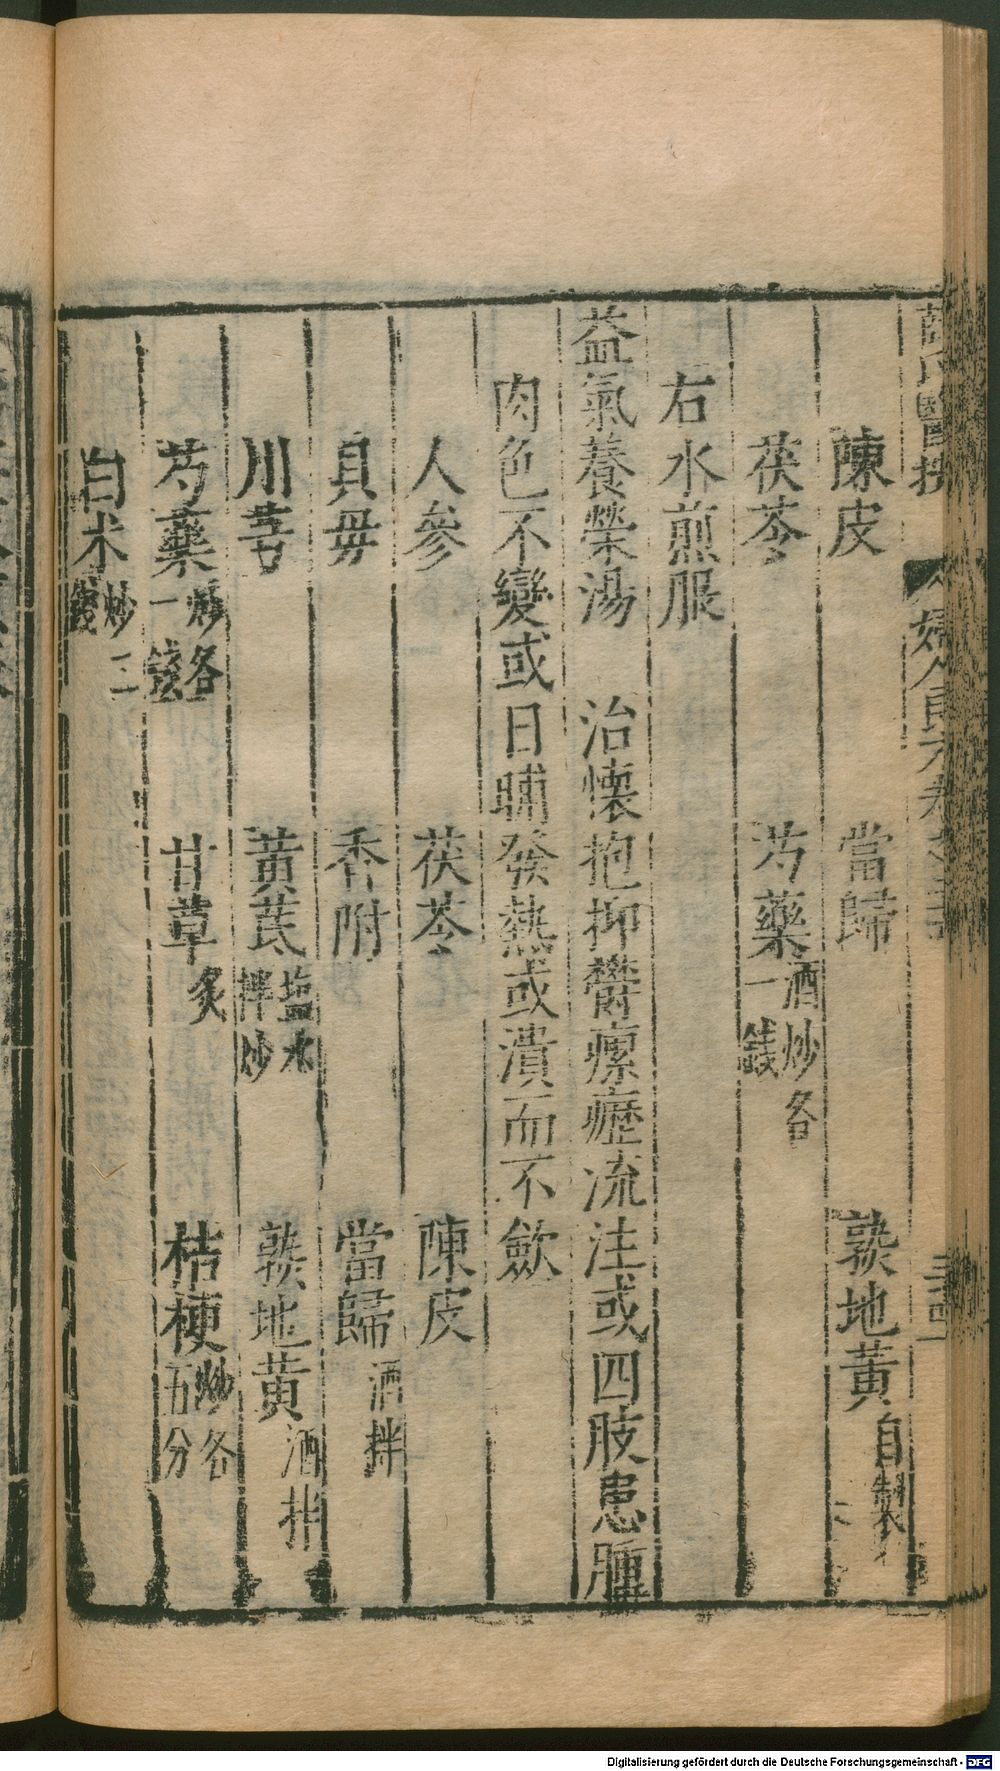 薛氏醫按
婦人良方卷
陳皮 當歸 熟地黄自製
茯苓 芍藥酒炒各一錢
右水煎服
益氣養榮湯 治懷抱抑欝瘰癧流注或四肢患腫
肉色不變或日晡發熱或潰而不歛
人參 茯苓 陳皮
貝毋 香附 當歸酒拌
川芎 黃茋塩水拌炒 熟地黄酒拌
芍藥炒各一錢 甘草炙 桔梗炒各五分
白术炒二錢
Digitalisierung gefördert durch die Deutsche Forschungsgemeinschaft - DFG